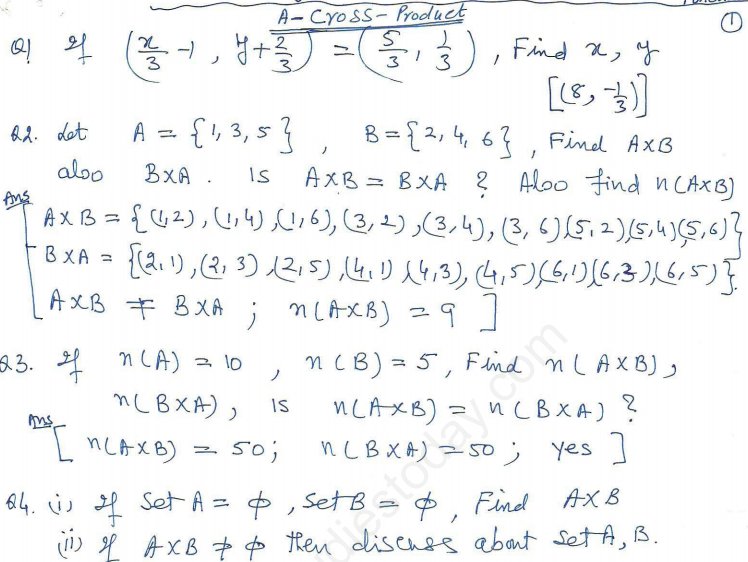 A - Cross - Product
①
Q1 If (x/3 - 1, y + 2/3) = (5/3, 1/3), Find x, y
[(8, -1/3)]
Q2. Let A = {1, 3, 5}, B = {2, 4, 6}, Find A×B
also B×A. Is A×B = B×A ? Also find n(A×B)
Ans
[A×B = {(1,2), (1,4), (1,6), (3,2), (3,4), (3,6)(5,2)(5,4)(5,6)}
B×A = {(2,1), (2,3), (2,5), (4,1)(4,3), (4,5)(6,1)(6,3)(6,5)}.
A×B ≠ B×A ; n(A×B) = 9 ]
Q3. If n(A) = 10, n(B) = 5, Find n(A×B),
n(B×A), is n(A×B) = n(B×A) ?
Ans
[n(A×B) = 50; n(B×A) = 50 ; Yes ]
Q4. (i) If Set A = ϕ, Set B = ϕ, Find A×B
(ii) If A×B ≠ ϕ then discuss about set A, B.
diestoday.com